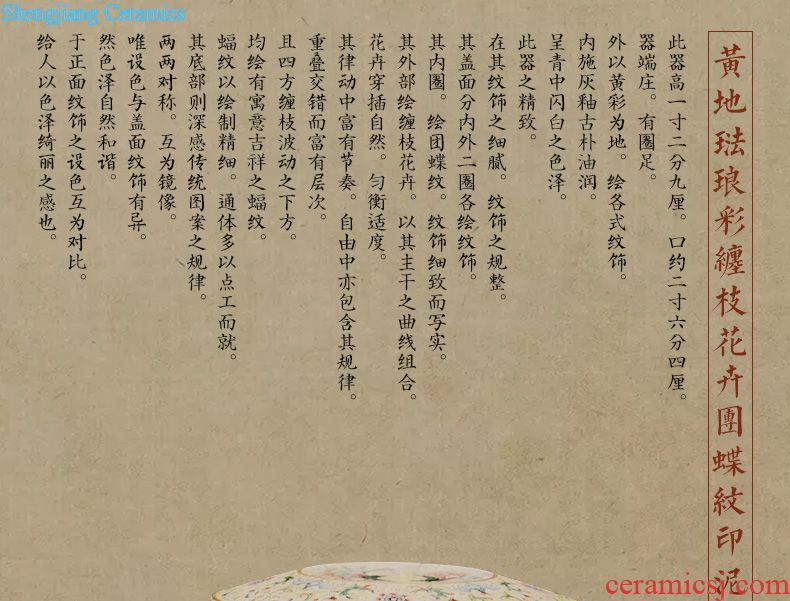 Shengjiang Ceramics
黃地珐琅彩纏枝花卉團蝶紋印泥
此器高一寸二分九厘。口约二寸六分四厘。
器端庄。有圈足。
外以黄彩为地。绘各式纹饰。
内施灰釉古朴油润。
呈青中闪白之色泽。
此器之精致。
在其纹饰之细腻。纹饰之规整。
其盖面分内外二圈各绘纹饰。
其内圈。绘团蝶纹。纹饰细致而写实。
其外部绘缠枝花卉。以其主干之曲线组合。
花卉穿插自然。匀衡适度。
其律动中富有节奏。自由中亦包含其规律。
重叠交错而富有层次。
且四方缠枝波动之下方。
均绘有寓意吉祥之蝠纹。
蝠纹以绘制精细。通体多以点工而就。
其底部则深感传统图案之规律。
两两对称。互为镜像。
唯设色与盖面纹饰有异。
然色泽自然和谐。
于正面纹饰之设色互为对比。
给人以色泽绮丽之感也。
ceramicsj.com